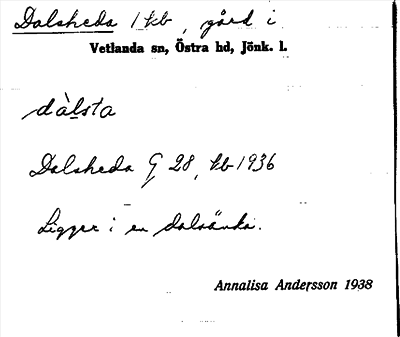 Dalsheda 1 kb, gård i
Vetlanda sn, Östra hd, Jönk. l.
dàlsta
Dalsheda G 28, kb 1936
Ligger i en dalsänka.
Annalisa Andersson 1938